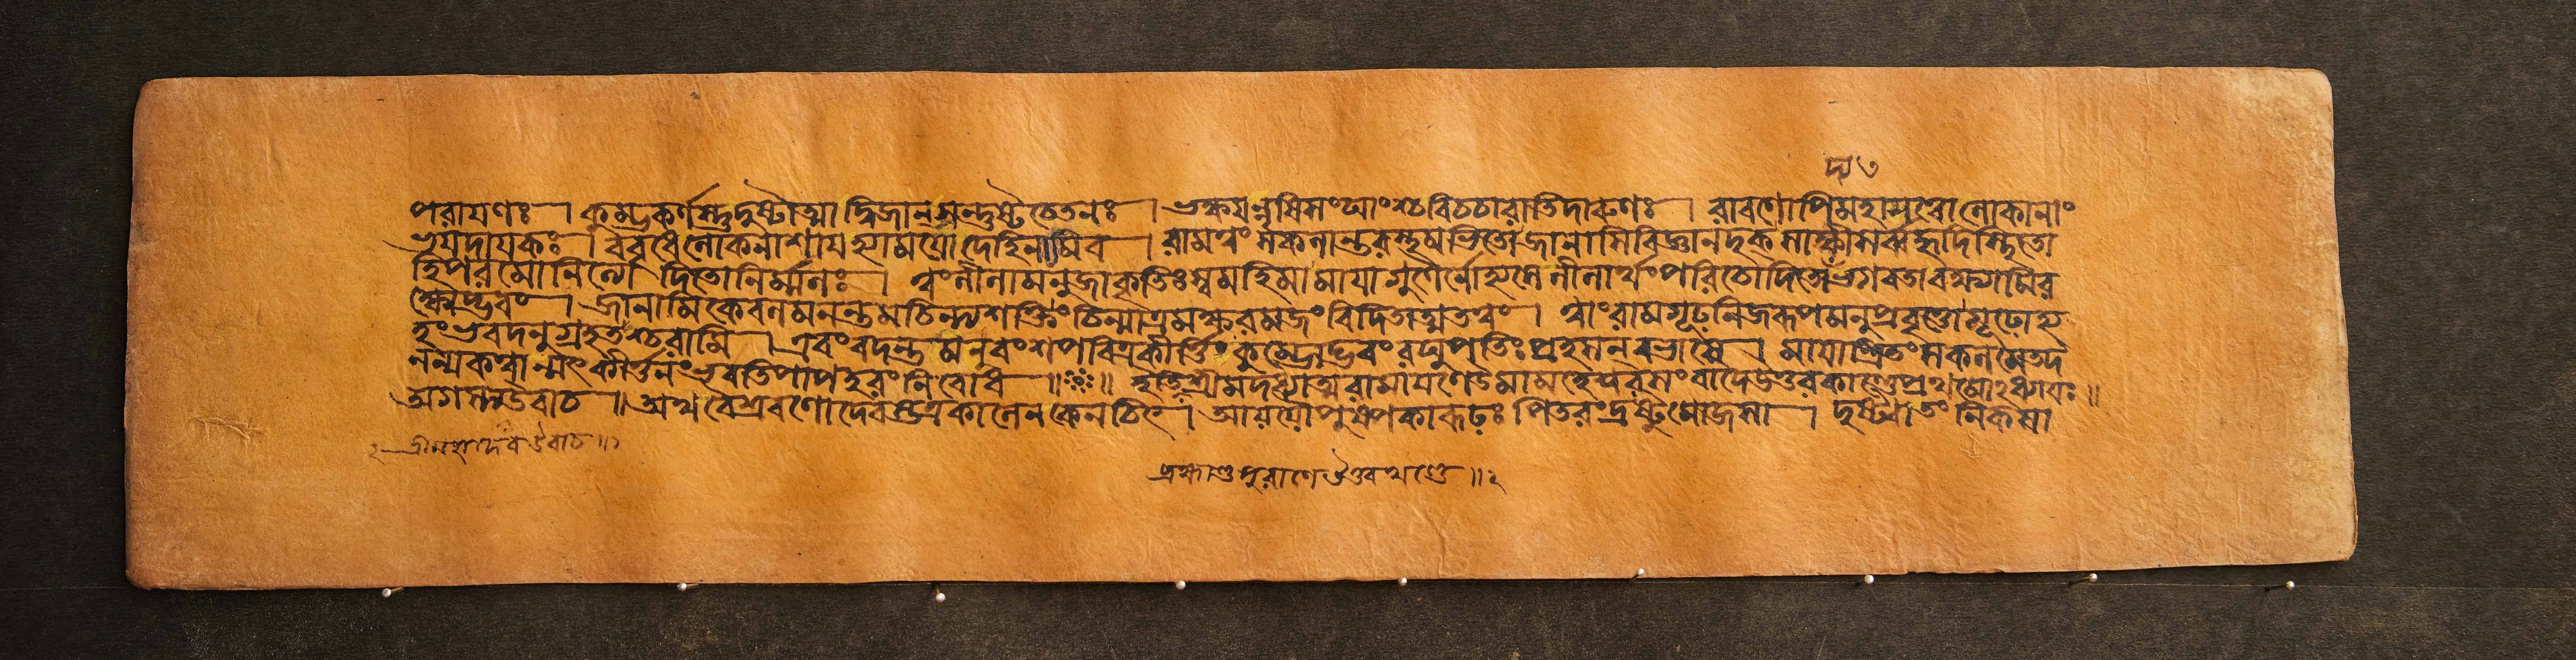 দ্য ৩
পরায়ণঃ । কুম্ভকর্ণস্তু দুষ্টাত্মা দ্বিজান্ সন্তুষ্টচেতনঃ । ভক্ষয়ন্নৃষিসংঘাংশ্চ বিচচারাতিদারুণঃ । রাবণোপি মহাসত্ত্বো লোকানাং
ভয়দায়কঃ । ববৃধে লোকনাশায় হ্যাময়ো দেহিনামিব । রাম ত্বং সকলান্তরস্থমভিতো জানাসি বিজ্ঞানদৃক্ সাক্ষী সর্বহৃদিস্থিতো
হি পরমো নিত্যোদিতো নির্ম্মলঃ । ত্বং লীলামনুজাকৃতিঃ স্বমহিমা মায়াগুণৈর্নোহ্যসে লীলার্থং পরিচোদিতো ভগবতা বক্ষ্যামি র
ক্ষোদ্ভবং । জানামি কেবলমনন্তমচিন্ত্যশক্তিং চিন্মাত্রমক্ষরমজং বিদিতাত্মতত্ত্বং । ত্বাং রাম গূঢনিজরূপমনুপ্রবৃত্তো মূঢোহ্য
হং ভবদনুগ্রহতশ্চরামি । এবং বদন্তমিনবংশপবিত্রকীর্ত্তিঃ কুম্ভোদ্ভবং রঘুপতিঃ প্রহসন্ বভাষে । মায়াশ্রিতং সকলমেতদ
নন্যকত্বান্মৎকীর্ত্তনং ভবতি পাপহরং নিবোধ ॥ ইতি শ্রীমদধ্যাত্মরামায়ণে উমামহেশ্বরসংবাদে উত্তরকাণ্ডে প্রথমোঽধ্যায়ঃ ॥
অগস্ত্য উবাচ ॥ অথ বৈশ্রবণো দেবস্তত্র কালেন কেনচিৎ । আয়যৌ পুষ্পকারূঢঃ পিতরং দ্রষ্টুমোজসা । দৃষ্ট্বা তং নিকসা
২ শ্রীমহাদেব উবাচ ॥
ব্রহ্মাণ্ডপুরাণে উত্তরখণ্ডে ॥ ২